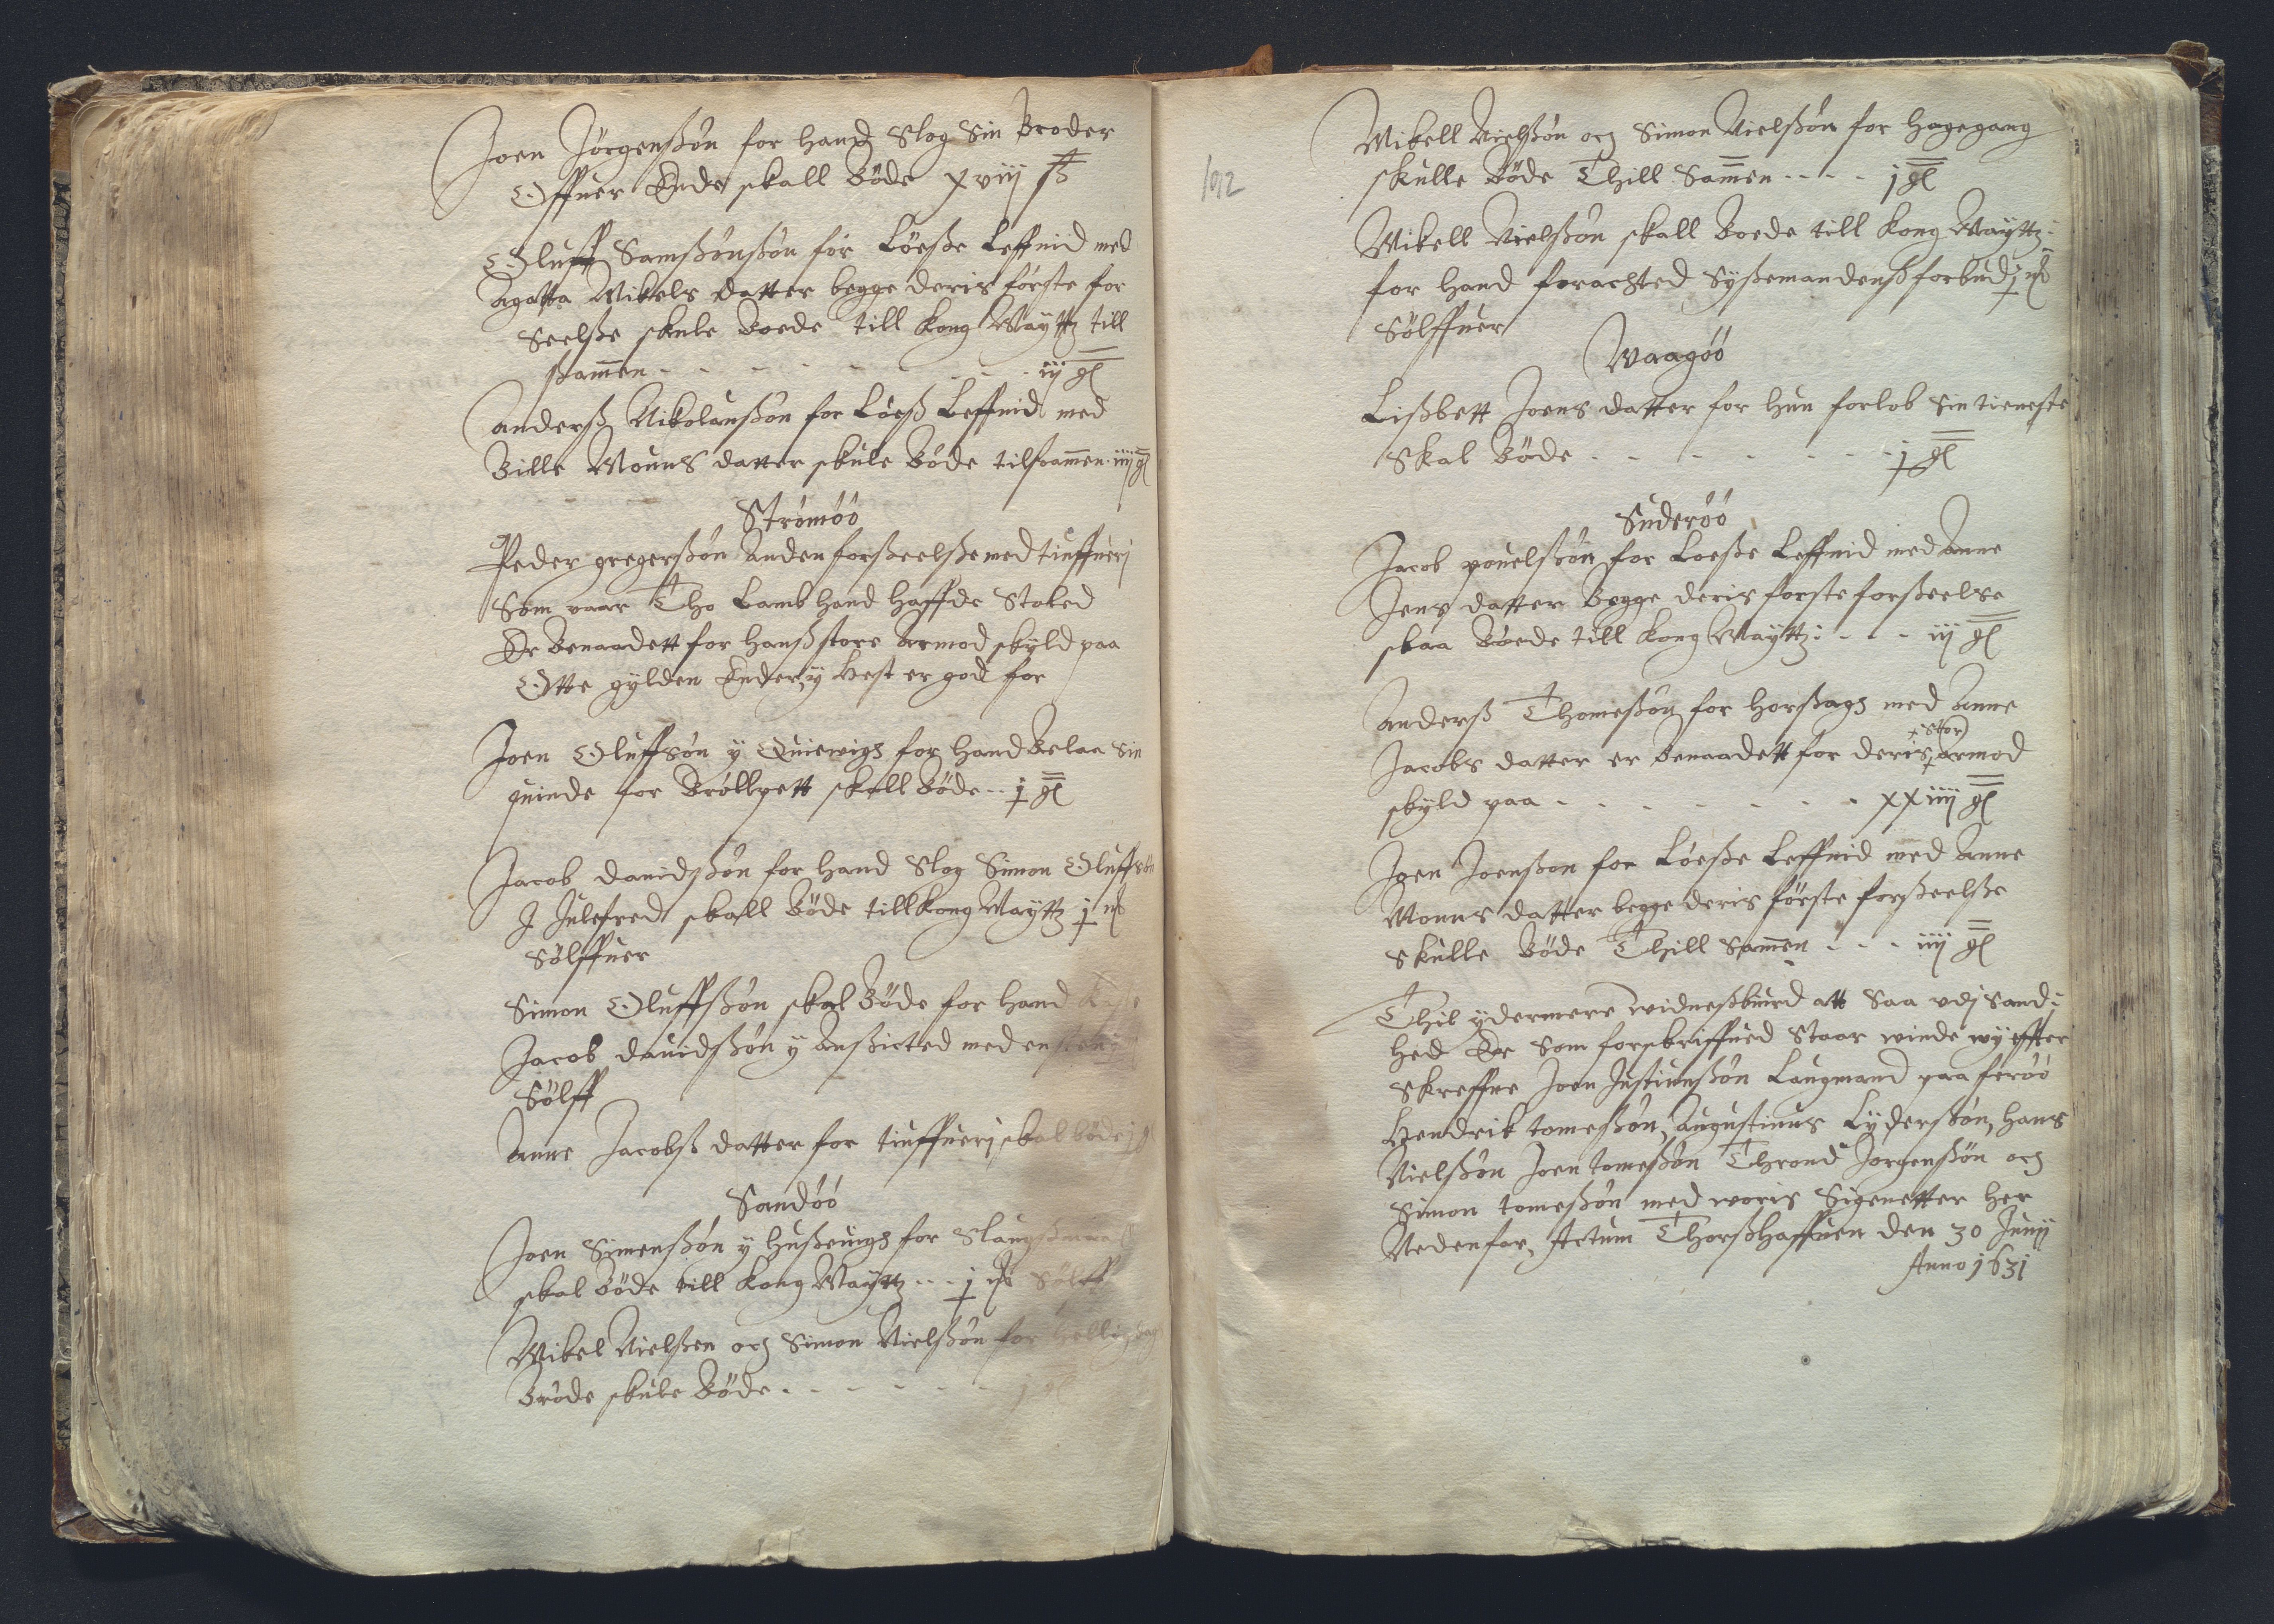 Joen Jörgenßön for hand Slog Sin Broder
Offuer Ende skall Böde xviij ß
Oluff Samßönßön för Löeße Leffnid med
Agatta Mikels datter begge deris förste for
Seelße skule Boede till Kong Maÿtt till
ßamen - - - - - - - iij gl
Anderß Nikolaußön for Löeß Leffnid med
Bille Mouns datter skule Böde tilsamen iiij gl
Strömöö
Peder gregerßön Anden forßeelße med tiuffuerj
Som vaar Tho Lamb hand haffde Stoled
Er Benaadett for hanß store Armod skyld paa
Otte gylden Ender, y Hest er god for
Joen Oluffsön ÿ Quiewigh for hand Belaa Sin
quinde for Bröllpett skall Böde - - j gl
Jacob dauidßön for hand Slog Simon Oluffsön
J Julefred skall Böde till Kong Maÿtt j
Sölffuer
Simon Oluffßön skal Böde for hand
Jacob dauidßön ÿ Anßicted med en
Sölff
Anne Jacobß datter for tiuffuerj skal böde j gl
Sandöö
Joen Simenßön ÿ Hußeuigh for
skal Böde till Kong Maÿtt - - - j Sölff
Mikel Nielßen och Simon Nielßön for
Bröde skule Böde - - - - - - j gl
192
Mikell Nielßön och Simon Nielßön for Hagegang
skulle Böde Thill Samen - - - - j gl
Mikell Nielßön skall Boede till Kong Maÿtt:
for hand forachted Sÿßemandenß forbud j
Sölffuer
Waagöö
Lißbett Joens datter for hun forlob Sin tieneste
Skal Böde - - - - - - - j gl
Suderöö
Jacob pouelßön for Loeße Leffnid med Anne
Jens datter Begge deris forste forßeelse
skaa Böede till Kong Maÿtt: - - - iij gl
Anderß Thomeßön for Horßagh med Anne
Jacobs datter er Benaadett for deris stor Armod
skyld paa - - - - - - - - xxiiij gl
Joen Joenßon for Löeße Leffnid med Anne
Mouns datter begge deris förste forßeelße
skulle Böde Thill Samen - - - iiij gl
Thil ÿdermere widneßbiurd att Saa vdj Sand:
hed Er Som forskriffued Staar winde wÿ effter
Skreffne Joen Justinußön Laugmand paa feröö
Hendrik tomeßön, Augustinus Lÿderßön, Hans
Nielßön Joen tomeßön Thrond Jorgenßön och
Simon tomeßön med woris Sigenetter Her
Nedenfor, Actum Thorßhaffuen den 30 Junij
Anno 1631